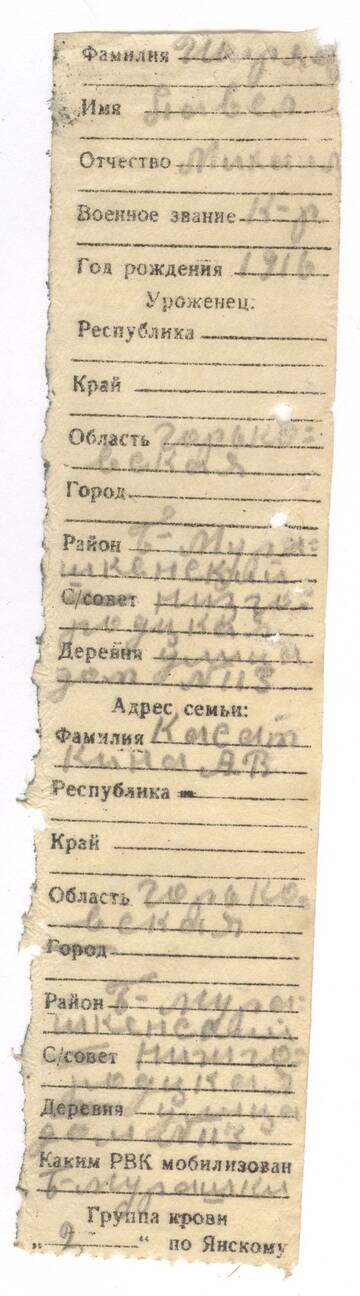 Фамилия
Имя Павел
Отчество Михаил
Военное звание К-р
Год рождения 1916
Уроженец:
Республика
Край
Область Горько=
вская
Город
Район Б-Мура=
шкенский
С/совет Низго=
родцкая
Деревня улица
дом №113
Адрес семьи:
Фамилия Касат
кина АВ
Республика
Край
Область Горько=
вская
Город
Район Б-Мура=
шкенский
С/совет Нижго=
родцкая
Деревня улица
дом №113
Каким РВК мобилизован
Б-Мурашки
Группа крови
„ 2 “ по Янскому